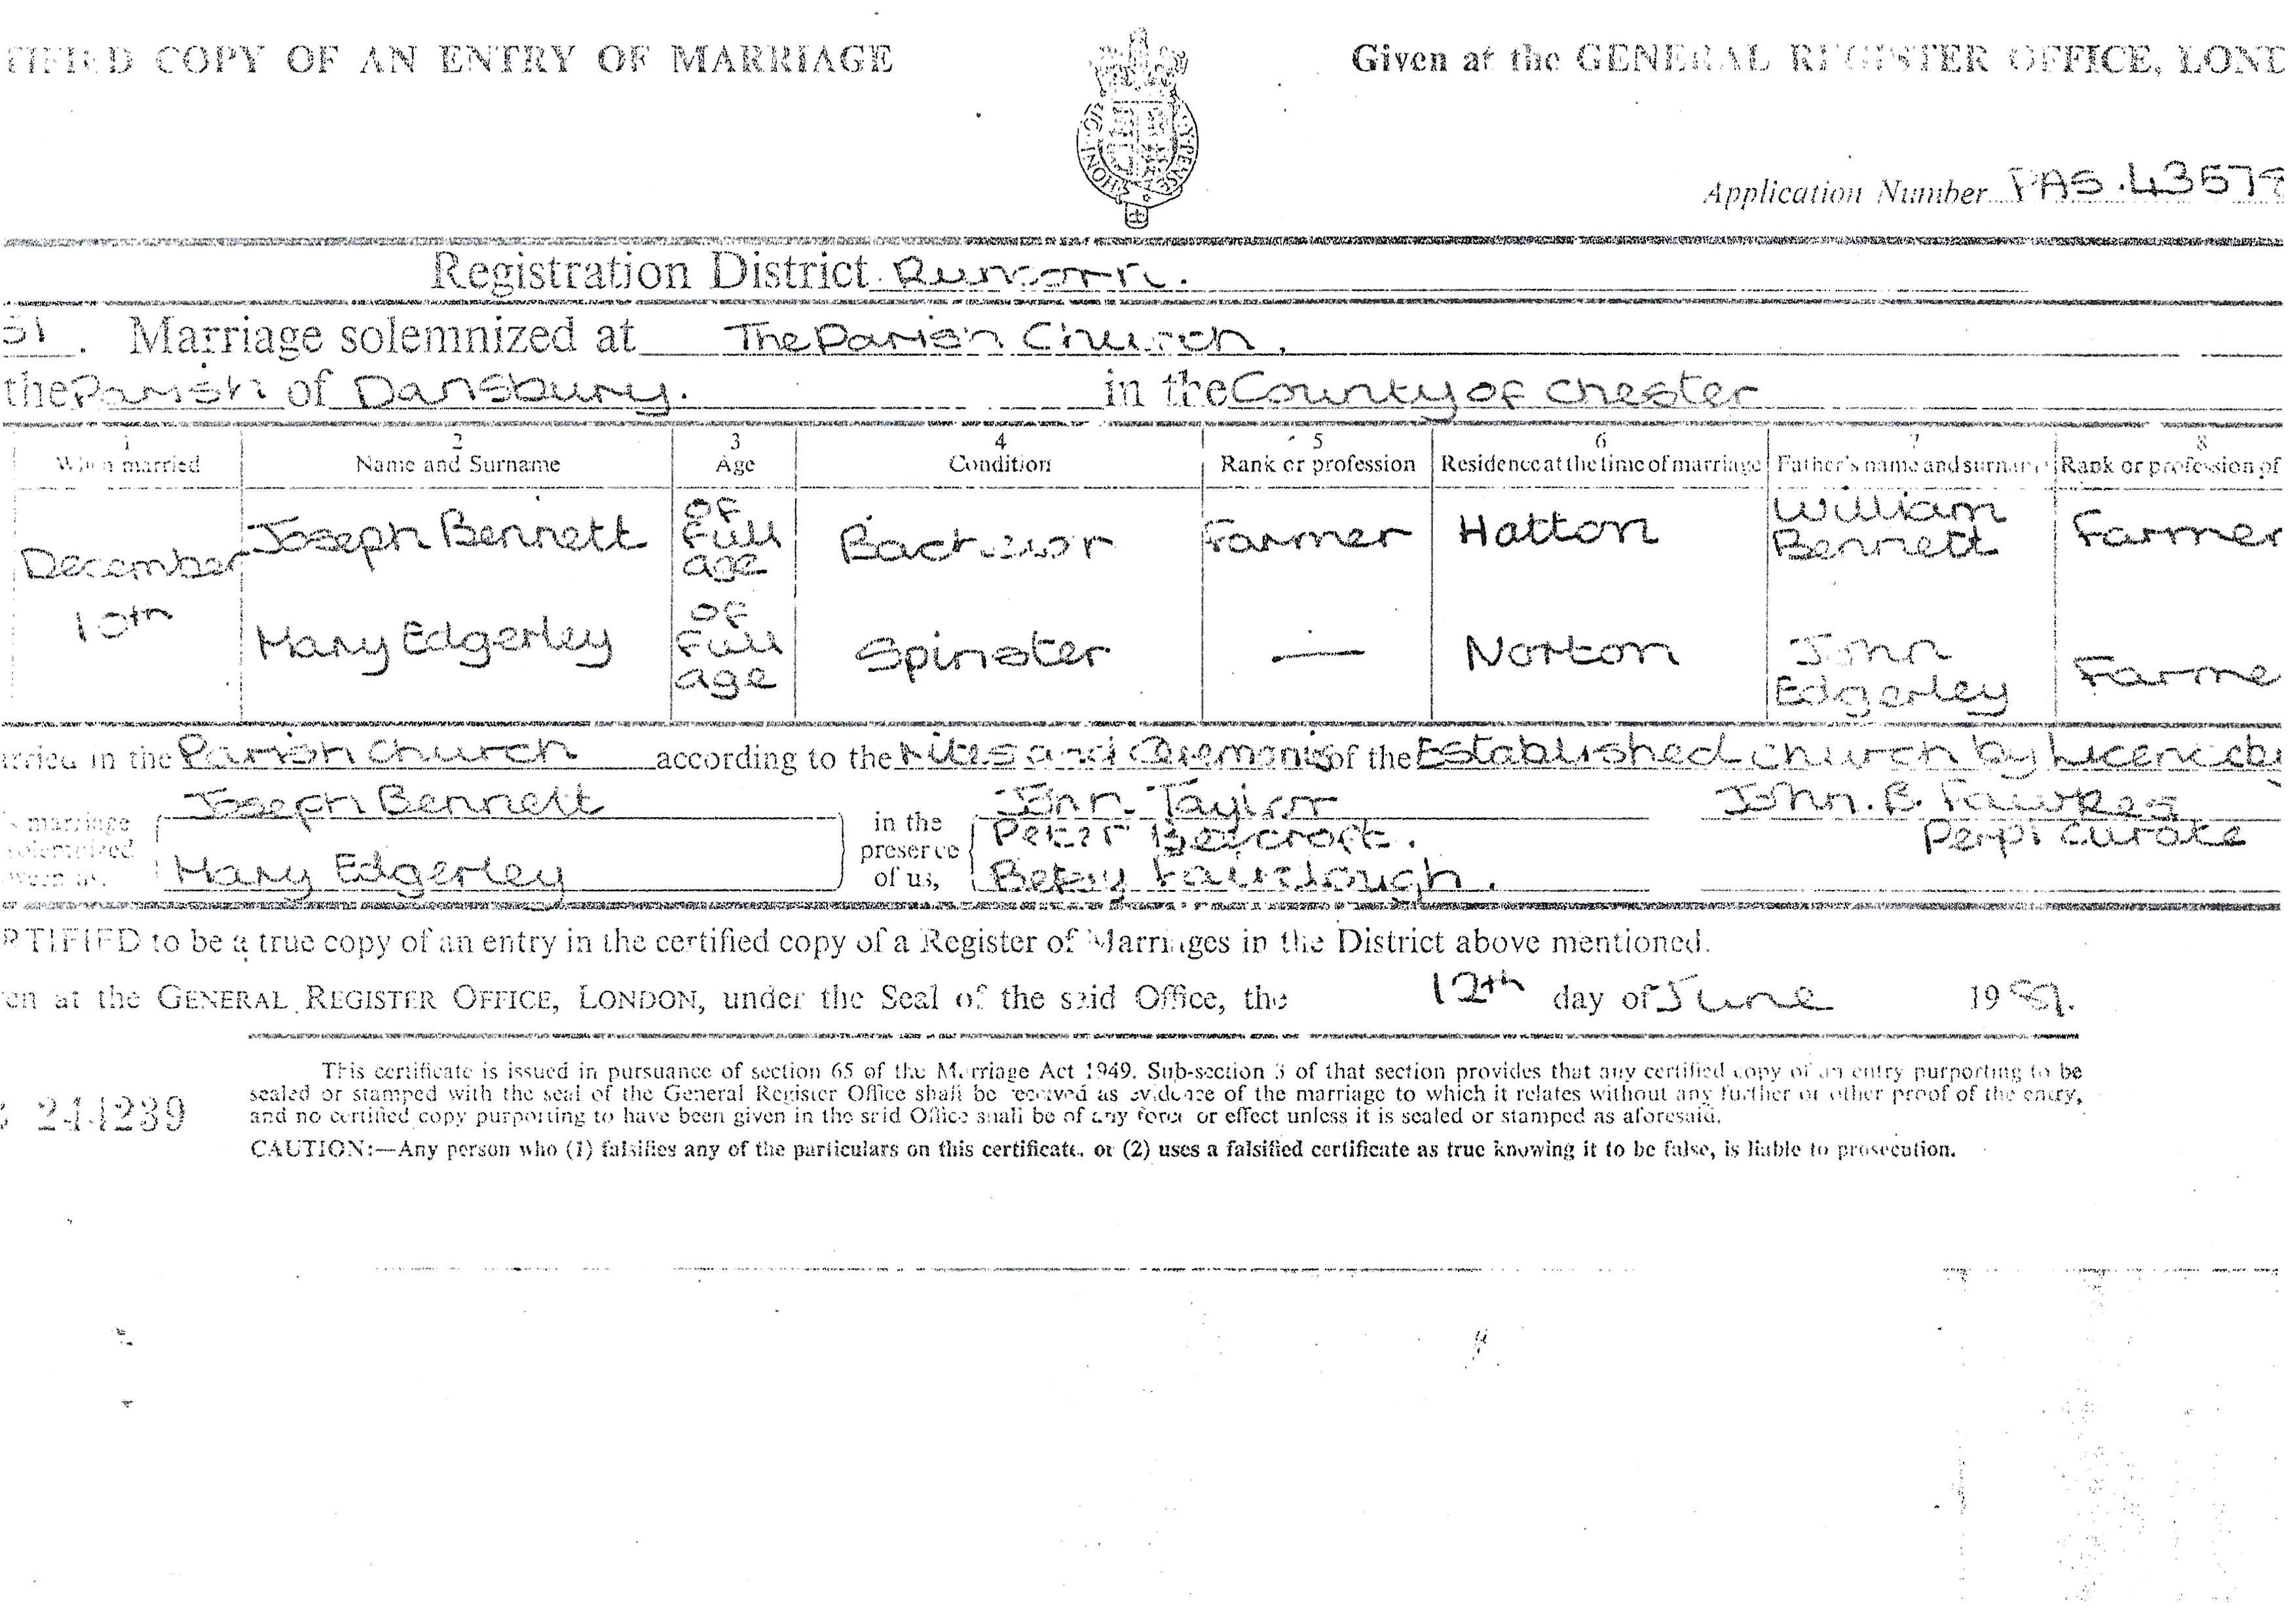 TIFIED COPY OF AN ENTRY OF MARRIAGE
Given at the GENERAL REGISTER OFFICE, LOND
HONI PENSE
Application Number PAS.43578
Registration District Runcorn.
51. Marriage solemnized at The Parish Church.
the Parish of Dansbury. in the County of Chester
1 2 3 4 5 6 7 8
When married Name and Surname Age Condition Rank or profession Residence at the time of marriage Father's name and surname Rank or profession of
December 10th Joseph Bennett of Full age Bachelor Farmer Hatton William Bennett Farmer
Mary Edgerley of Full age Spinster — Norton John Edgerley Farme
arried in the Parish Church according to the Rites and Ceremonies of the Established Church by Licence by
s marriage solemnized ween us, Joseph Bennett Mary Edgerley
in the presence of us, John Taylor Peter Beycroft. Betsy Fairclough.
John. B. Fawkes
Perpl Curate
RTIFIED to be a true copy of an entry in the certified copy of a Register of Marriages in the District above mentioned.
en at the GENERAL REGISTER OFFICE, LONDON, under the Seal of the said Office, the 12th day of June 1989.
This certificate is issued in pursuance of section 65 of the Marriage Act 1949. Sub-section 3 of that section provides that any certified copy of an entry purporting to be
sealed or stamped with the seal of the General Register Office shall be received as evidence of the marriage to which it relates without any further or other proof of the entry,
and no certified copy purporting to have been given in the said Office shall be of any force or effect unless it is sealed or stamped as aforesaid.
244239
CAUTION:—Any person who (1) falsifies any of the particulars on this certificate, or (2) uses a falsified certificate as true knowing it to be false, is liable to prosecution.